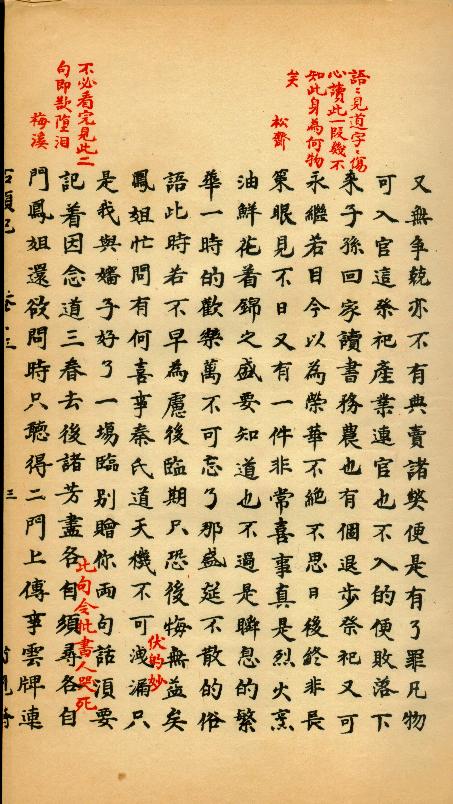 語〻見道字〻傷
心讀此一段幾不
知此身為何物
矣 松齋
不必看完見此二
句即欲墮泪
梅溪
又無争竞亦不有典賣諸獘便是有了罪凡物
可入官這祭祀產業連官也不入的便敗落下
来子孫回家讀書務農也有個退步祭祀又可
永繼若目今以為榮華不絶不思日後終非長
策眼見不日又有一件非常喜事真是烈火烹
油鮮花着錦之盛要知道也不過是瞬息的繁
華一時的歡樂萬不可忘了那盛筵不散的俗
語此時若不早為慮後臨期只恐後悔無益矣
伏的妙
鳳姐忙問有何喜事秦氏道天機不可洩漏只
是我與嬸子好了一塲臨别贈你兩句話須要
此句令批書人哭死
記着因念道三春去後諸芳盡各自須尋各自
門鳳姐還欲問時只聽得二門上傳事雲牌連
三